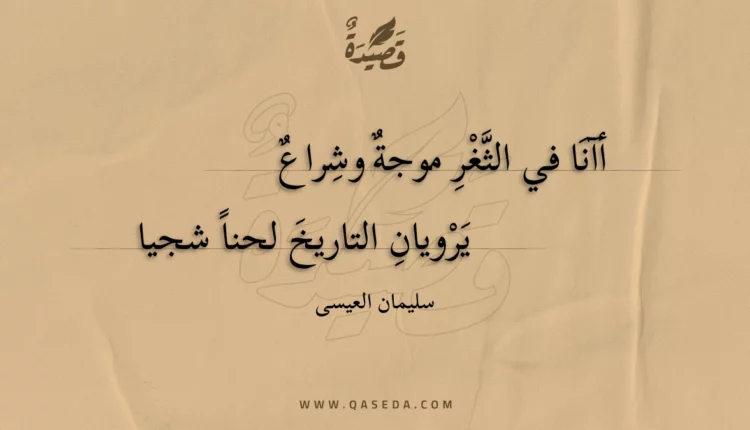 قَصِيْدَةٌ
أآنَا في الثَّغْرِ موجةٌ وشِراعٌ
يَرْويانِ التاريخَ لحناً شجيا
سليمان العيسى
WWW.QASEDA.COM